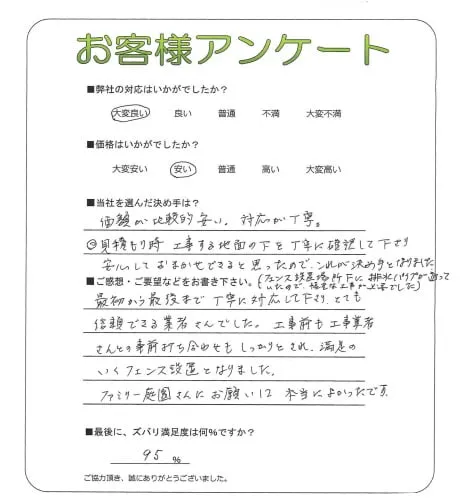 お客様アンケート
■弊社の対応はいかがでしたか?
大変良い 良い 普通 不満 大変不満
■価格はいかがでしたか?
大変安い 安い 普通 高い 大変高い
■当社を選んだ決め手は?
価額が比較的安い。対応が丁寧。
◎見積もり時 工事する地面の下を丁寧に確認して下さり
安心しておまかせできると思ったので、これが決め手となりました
■ご感想・ご要望などをお書き下さい。
(フェンス設置場所下に排水パイプが通って
いたので、 工事が必要でした)
最初から最後まで丁寧に対応して下さり とても
信頼できる業者さんでした。工事前も工事業者
さんとの事前打ち合わせもしっかりとされ、満足の
いくフェンス設置となりました。
ファミリー庭園さんにお願いして 本当によかったです
■最後に、ズバリ満足度は何%ですか?
95 %
ご協力頂き、誠にありがとうございました。